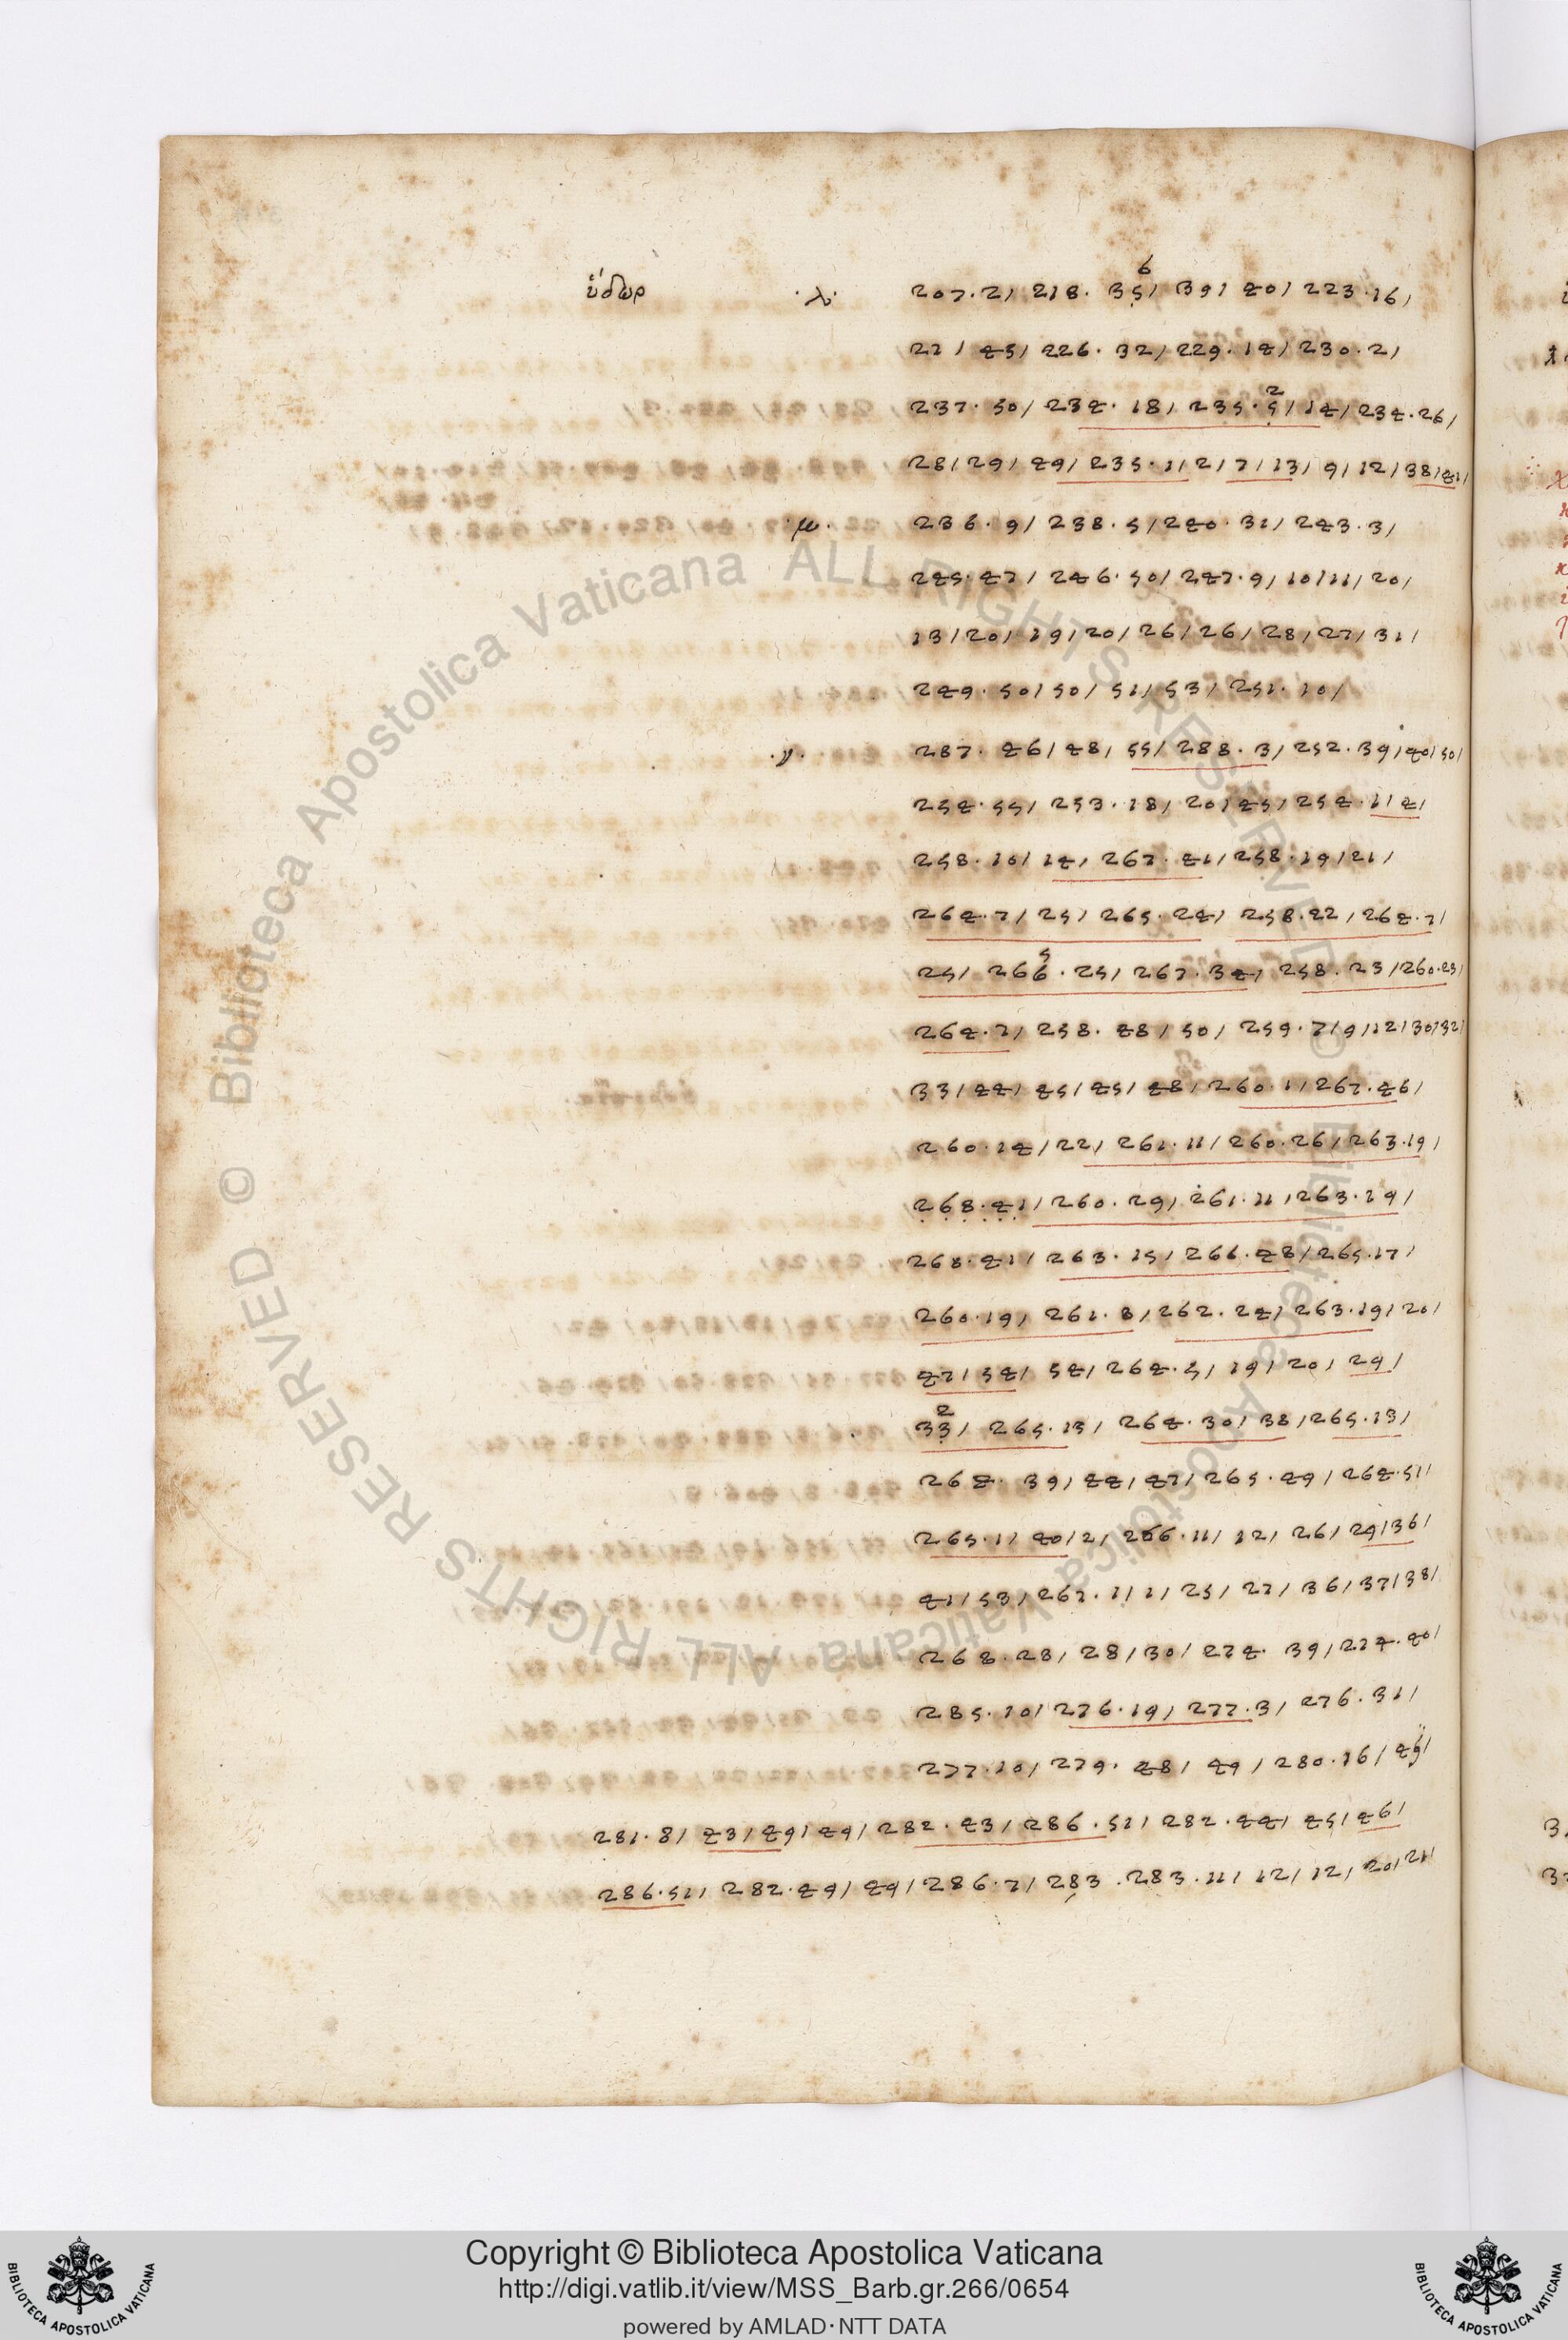 ὕδωρ ·λ· 207.2/ 218. 35/ 39/ 40/ 223.16/
6
27/ 45/ 226. 32/ 229. 14/ 230. 2/
237. 50/ 234. 18/ 235. 5/ 14/ 234. 26/
2
28/ 29/ 49/ 235. 1/ 2/ 7/ 13/ 9/ 12/ 38/ 41/
·μ· 236. 9/ 238. 5/ 240. 31/ 243. 3/
245. 47/ 246. 50/ 247. 9/ 10/ 11/ 20/
13/ 20/ 19/ 20/ 26/ 26/ 28/ 27/ 31/
249. 50/ 50/ 51/ 53/ 251. 10/
·ν· 287. 46/ 48/ 55/ 288. 3/ 252. 39/ 40/ 50/
254. 55/ 253. 18/ 20/ 45/ 254. 1/ 4/
258. 10/ 14/ 267. 41/ 258. 19/ 21/
264. 7/ 25/ 265. 24/ 258. 22/ 264. 7/
25/ 266. 25/ 267. 34/ 258. 23/ 260. 23/
5
264. 7/ 258. 48/ 50/ 259. 7/ 9/ 12/ 30/ 32/
33/ 44/ 45/ 45/ 48/ 260. 1/ 267. 46/
260. 14/ 22/ 261. 11/ 260. 26/ 263. 19/
268. 41/ 260. 29/ 261. 11/ 263. 19/
268. 41/ 263. 15/ 266. 48/ 265. 17/
260. 19/ 261. 8/ 262. 24/ 263. 19/ 20/
47/ 54/ 54/ 264. 5/ 19/ 20/ 29/
33/ 265. 13/ 264. 30/ 38/ 265. 13/
2
264. 39/ 44/ 47/ 265. 49/ 264. 51/
265. 1/ 40/ 2/ 266. 11/ 12/ 26/ 29/ 36/
41/ 53/ 267. 1/ 1/ 25/ 27/ 36/ 37/ 38/
268. 28/ 28/ 30/ 274. 39/ 274. 40/
285. 10/ 276. 19/ 277. 3/ 276. 31/
277. 10/ 279. 48/ 49/ 280. 16/ 49/
281. 8/ 43/ 49/ 49/ 282. 43/ 286. 51/ 282. 44/ 45/ 46/
286. 51/ 282. 49/ 49/ 286. 7/ 283. 283. 11/ 12/ 12/ 20/ 21/
© Biblioteca Apostolica Vaticana ALL RIGHTS RESERVED © Biblioteca Apostolica Vaticana ALL RIGHTS RESERVED
Copyright © Biblioteca Apostolica Vaticana
http://digi.vatlib.it/view/MSS_Barb.gr.266/0654
powered by AMLAD·NTT DATA
BIBLIOTECA APOSTOLICA VATICANA
BIBLIOTECA APOSTOLICA VATICANA